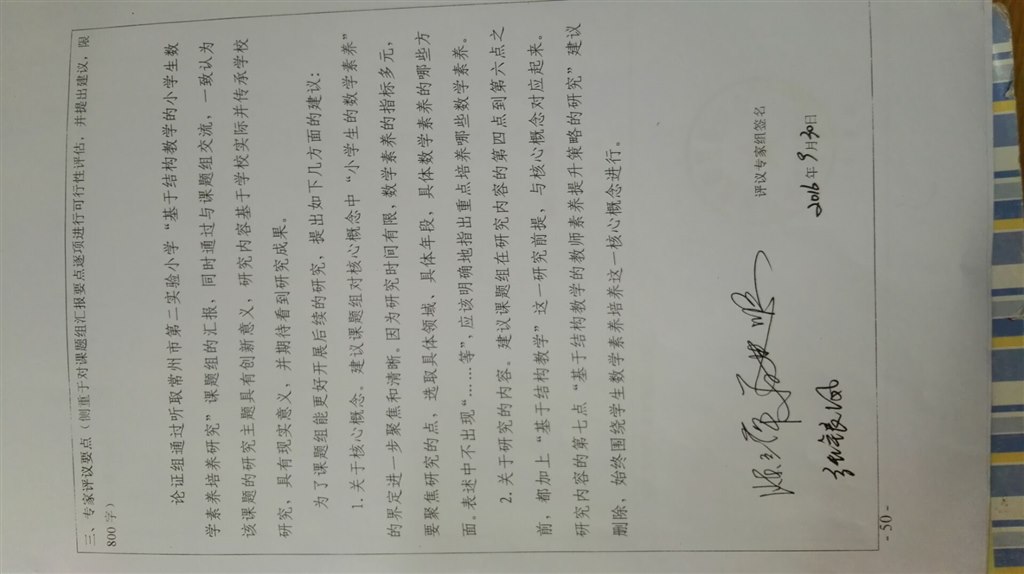 三、专家评议要点（侧重于对课题组汇报要点逐项进行可行性评估，并提出建议，限
800字）
论证组通过听取常州市第二实验小学“基于结构教学的小学生数
学素养培养研究”课题组的汇报，同时通过与课题组交流，一致认为
该课题的研究主题具有创新意义，研究内容基于学校实际并传承学校
研究，具有现实意义，并期待看到研究成果。
为了课题组能更好开展后续的研究，提出如下几方面的建议：
1.关于核心概念。建议课题组对核心概念中“小学生的数学素养”
的界定进一步聚焦和清晰。因为研究时间有限，数学素养的指标多元，
要聚焦研究的点，选取具体领域、具体年段，具体数学素养的哪些方
面。表述中不出现“……等”，应该明确地指出重点培养哪些数学素养。
2.关于研究的内容。建议课题组在研究内容的第四点到第六点之
前，都加上“基于结构教学”这一研究前提，与核心概念对应起来。
研究内容的第七点“基于结构教学的教师素养提升策略的研究”建议
删除，始终围绕学生数学素养培养这一核心概念进行。
评议专家组签名
2016年9月30日
-50-